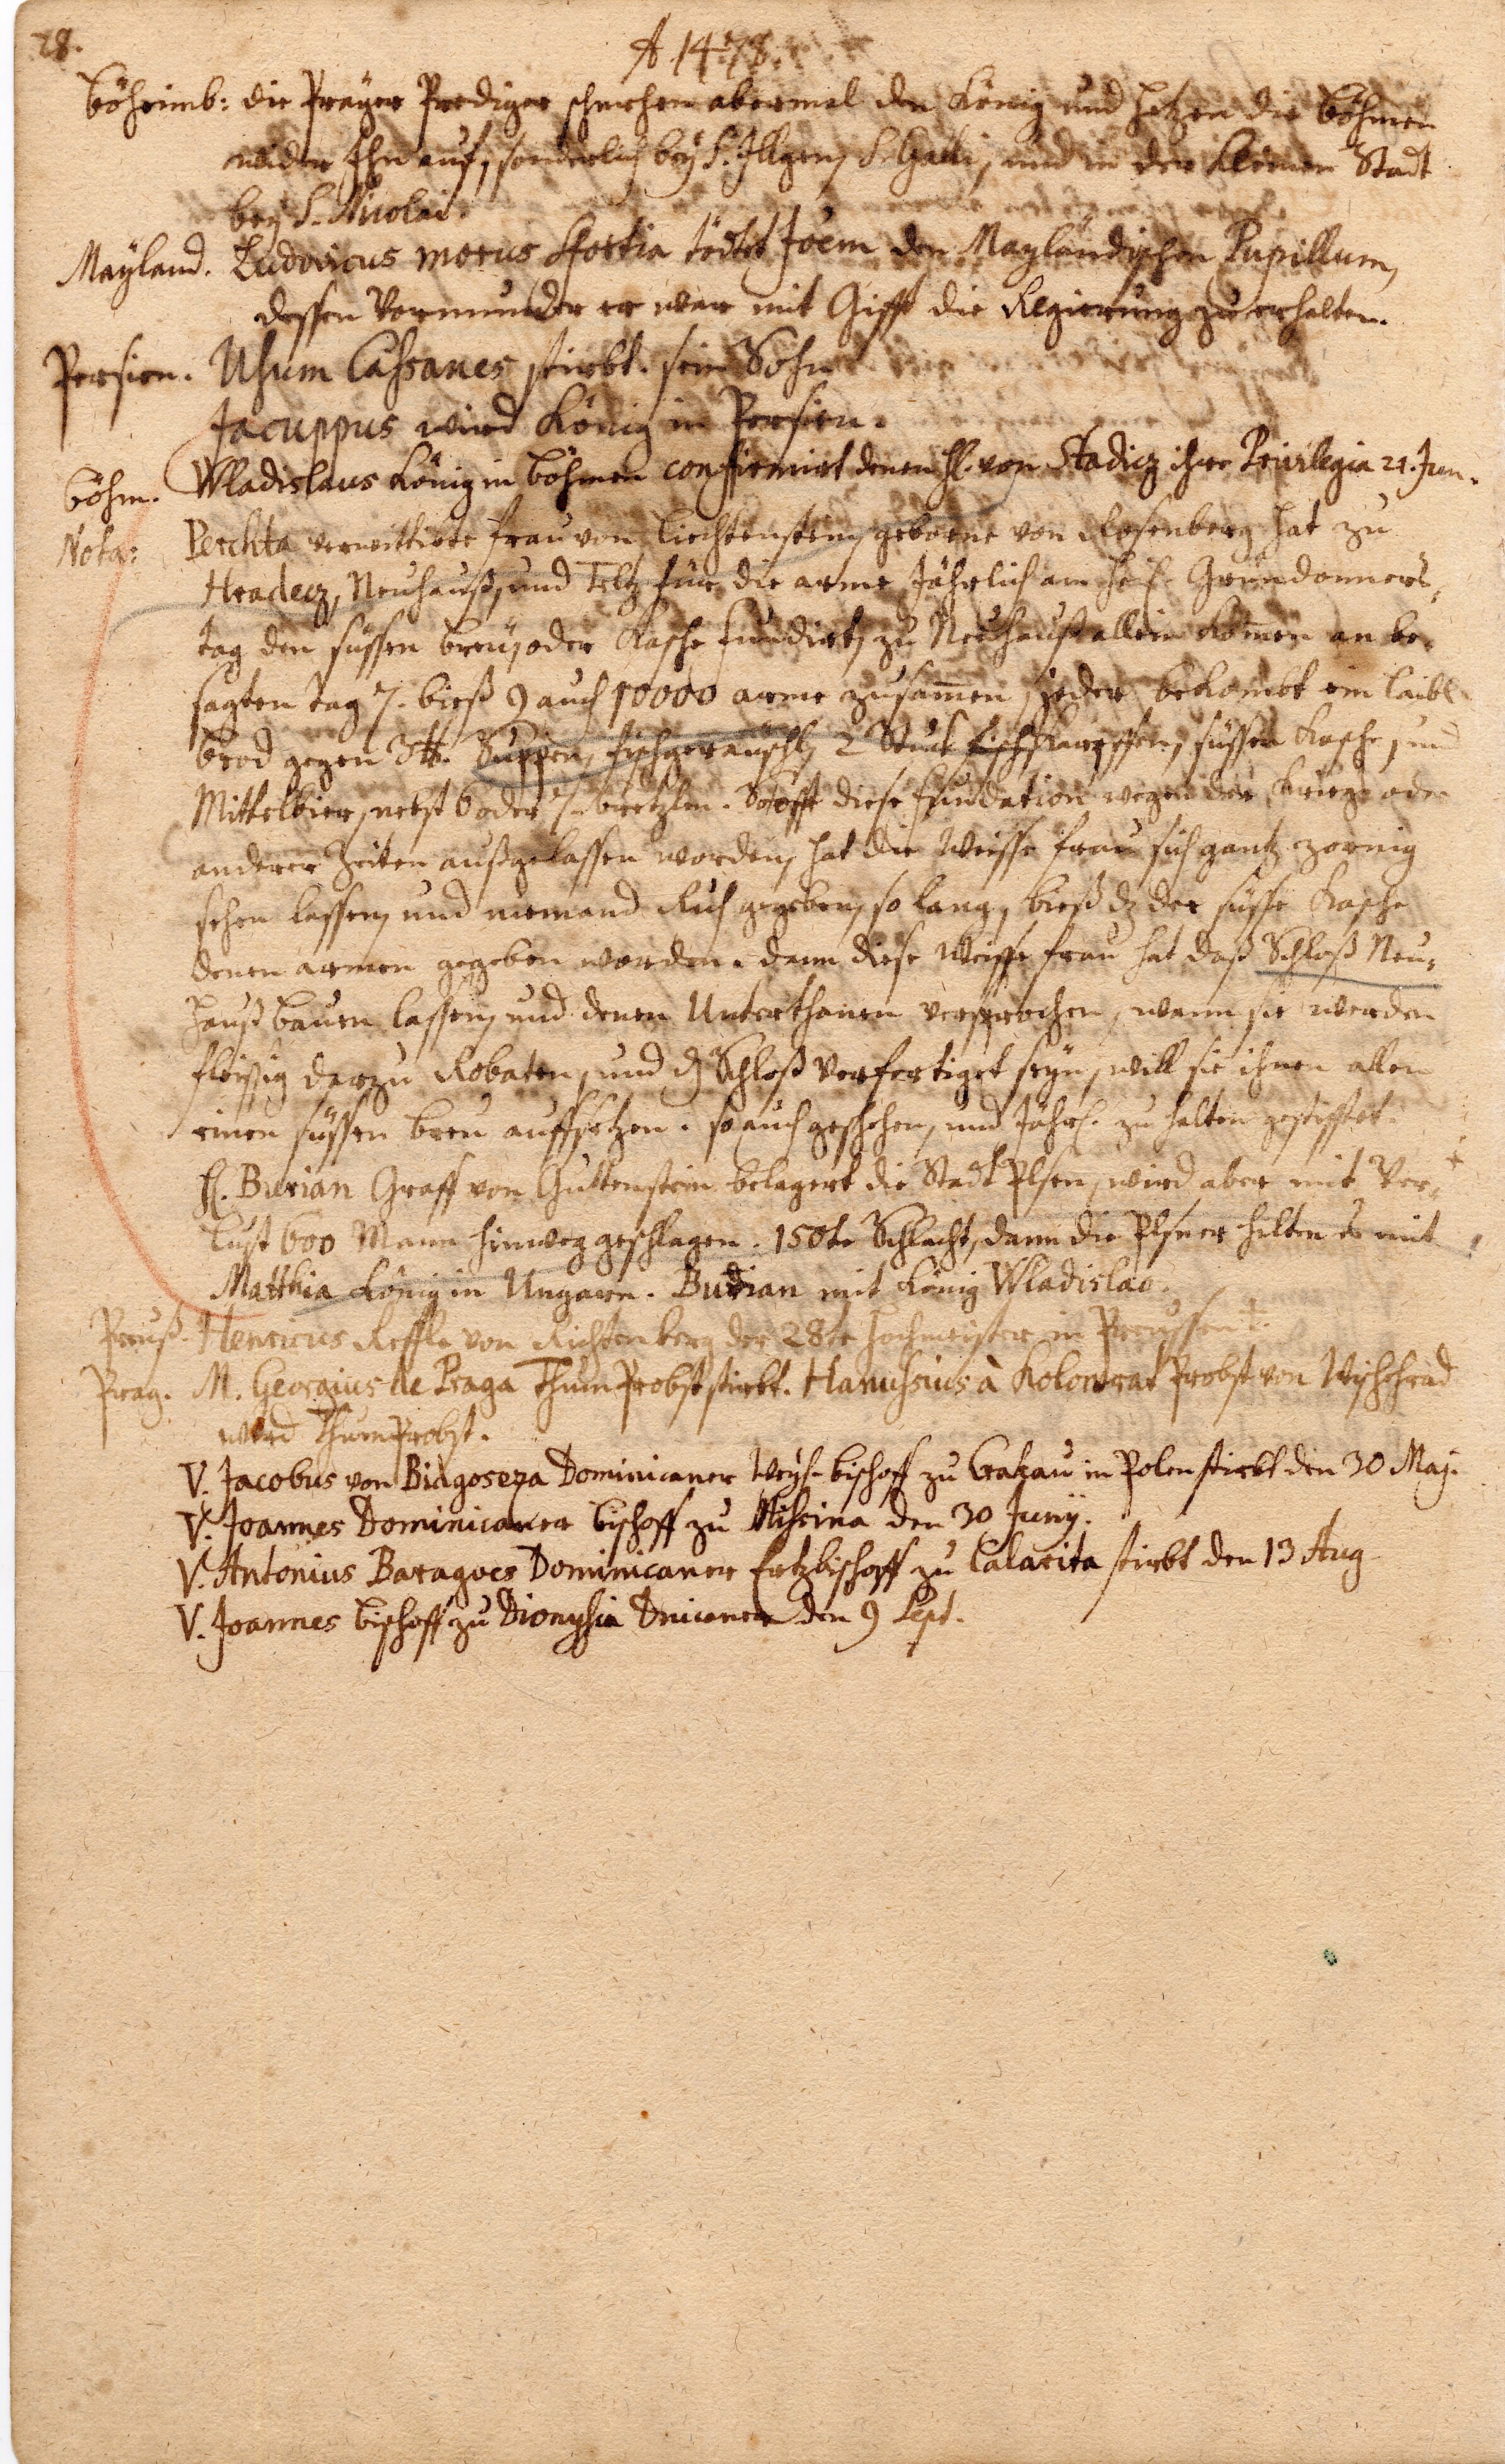 28.
A 1478.
Böheimb: die Prager Prediger schmehen abermal den König und hetzen die Böhmen
wider Ihn auf, sonderlich bey S. Illgen, S. Galli, und in der Kleinen Stadt
bey S. Nicolai.
Mayland. Ludovicus morus Sfortia tödtet Joem den Mayländischen Pupillum,
dessen Vormunder er war mit Gifft die Regierung zu erhalten.
Persien. Usum Cassanes stirbt. sein Sohn
Jacuppus wird König in Persien.
Böhm. Wladislaus König in Böhmen confirmirt denen H. von Stadicz ihre Privilegia 21. Jun.
Nota: Perchta verwittibte frau von Liechtenstein, geborne von Rosenberg hat zu
Hradecz, Neuhauß, und Teltz für die arme Jährlich am Gründonners-
tag den süssen breu, oder Kasche fundirt, zu Neuhauß allein kommen an be-
sagten tag 7. bieß 9 auch 10000 arme zusammen, jeder bekombt ein laibl
brod gegen 3 ℔. Suppen, fischgeräuschl, 2 Stuck fisch Karpffen, süssen Kasche, und
Mittelbier, nebst 6 oder 7. bretzlen. So offt diese fundation wegen der Kriege oder
anderer Zeiten außgelassen worden, hat die Weisse frau sich gantz zornig
sehen lassen, und niemand Ruh gegeben, so lang, bieß dz der süsse Kasche
denen armen gegeben worden. dann diese Weisse frau hat daß Schloß Neu-
hauß bauen lassen, und denen Unterthanen versprochen, wann sie werden
fleissig darzu Robaten, und dz Schloß verfertiget seyn, will sie ihnen allen
einen süssen breu auffsetzen. so auch geschehen, und Jährl. zu halten gestifftet.
H. Burian Graff von Guttenstein belagert die Stadt Plsen, wird aber mit Ver-
lust 600 Mann hinweg geschlagen. 150te Schlacht, dann die Plsner hilten es mit
Matthia König in Ungarn. Burian mit König Wladislao.
Preuß. Henricus Reffle von Richtenberg der 28te Hochmeister in Preussen †.
Prag. M. Georgius de Praga Thum Probst stirbt. Hanussius à Kolowrat Probst von Wischehrad
wird Thum Probst.
V. Jacobus von Bidgoseza Dominicaner Weyh-bischoff zu Crakau in Polen stirbt den 30 Maj.
V. Joannes Dominicaner bischoff zu den 30 Junij.
V. Antonius Baragoes Dominicaner Ertzbischoff zu Calarita stirbt den 13 Aug
V. Joannes bischoff zu Dionysia Dnicaner den 9 Sept.